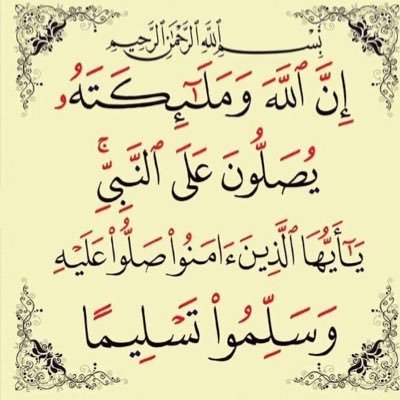 بِسْمِ ٱللَّهِ ٱلرَّحْمَٰنِ ٱلرَّحِيمِ
إِنَّ ٱللَّهَ وَمَلَٰٓئِكَتَهُۥ
يُصَلُّونَ عَلَى ٱلنَّبِيِّۚ
يَٰٓأَيُّهَا ٱلَّذِينَ ءَامَنُوا۟ صَلُّوا۟ عَلَيْهِ
وَسَلِّمُوا۟ تَسْلِيمًا